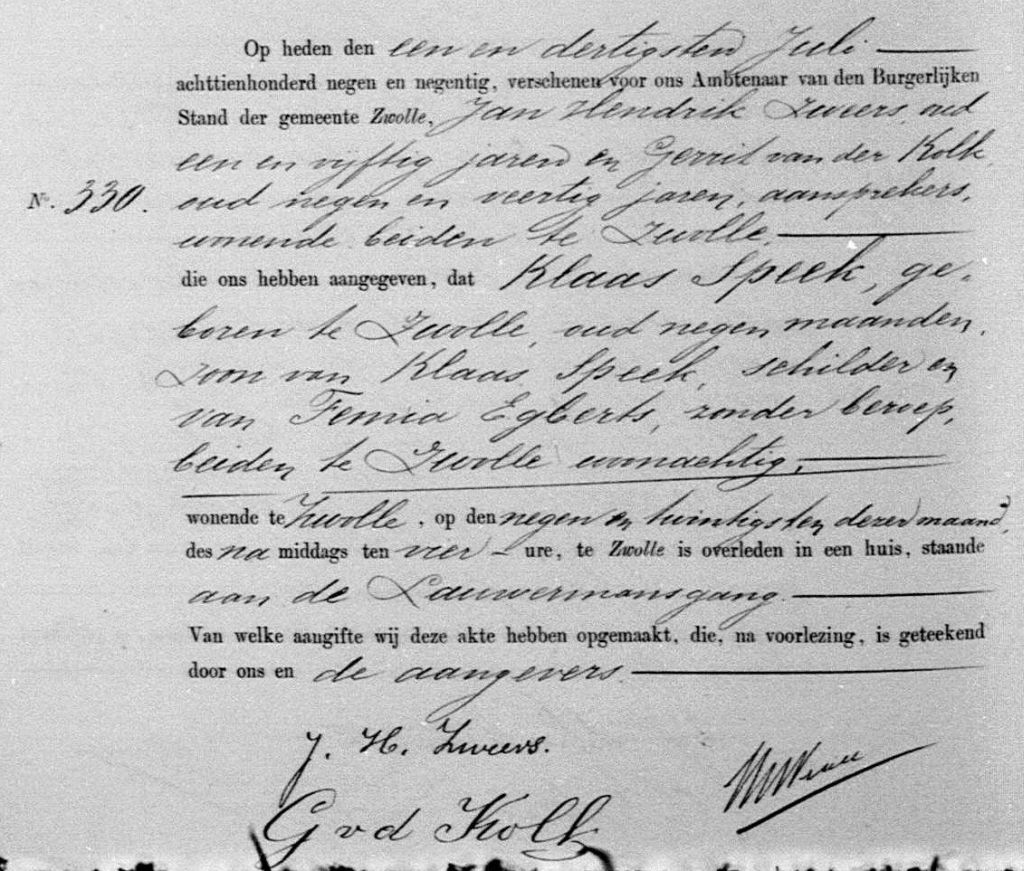 Op heden den een en dertigsten Juli
achttienhonderd negen en negentig, verschenen voor ons Ambtenaar van den Burgerlijken
Stand der gemeente Zwolle, Jan Hendrik Zweers, oud
een en vijftig jaren en Gerrit van der Kolk
No. 330. oud negen en veertig jaren, aansprekers,
wonende beiden te Zwolle,
die ons hebben aangegeven, dat Klaas Speek, ge-
boren te Zwolle, oud negen maanden,
zoon van Klaas Speek, schilder en
van Femia Egberts, zonder beroep,
beiden te Zwolle woonachtig,
wonende te Zwolle, op den negen en twintigsten dezer maand,
des na middags ten vier ure, te Zwolle is overleden in een huis, staande
aan de Lauwermansgang.
Van welke aangifte wij deze akte hebben opgemaakt, die, na voorlezing, is geteekend
door ons en de aangevers.
J. H. Zweers.
G vd Kolk